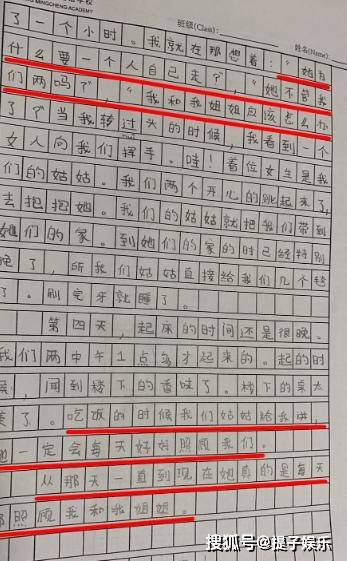 MINGCHENG ACADEMY
班级(Class):
姓名(Name):
了一个小时。我就在那想着：“她为
什么要一个人自己走？”，“她不管我
们两吗？”，“我和我姐姐应该怎么办
了？当我转过头的时候，我看到一个
女人向我们挥手。哇！着位女生是我
们的姑姑。我们两个开心的跳起来了，
去抱抱她。我们的姑姑就把我们带到
她们的家。到她们的家的时已经特别
晚了，所我们姑姑直接给我们几个
了。刷完牙就睡了。
第四天，起床的时间还是很晚。
我们两中午1点多才起来的。起的时
候，闻到楼下的香味了。楼下的桌太
美了。吃饭的时候我们姑姑给我讲，
她一定会每天好好照顾我们。
从那天一直到现在她真的是每天
都照顾我和我姐姐。
搜狐号@提子娱乐